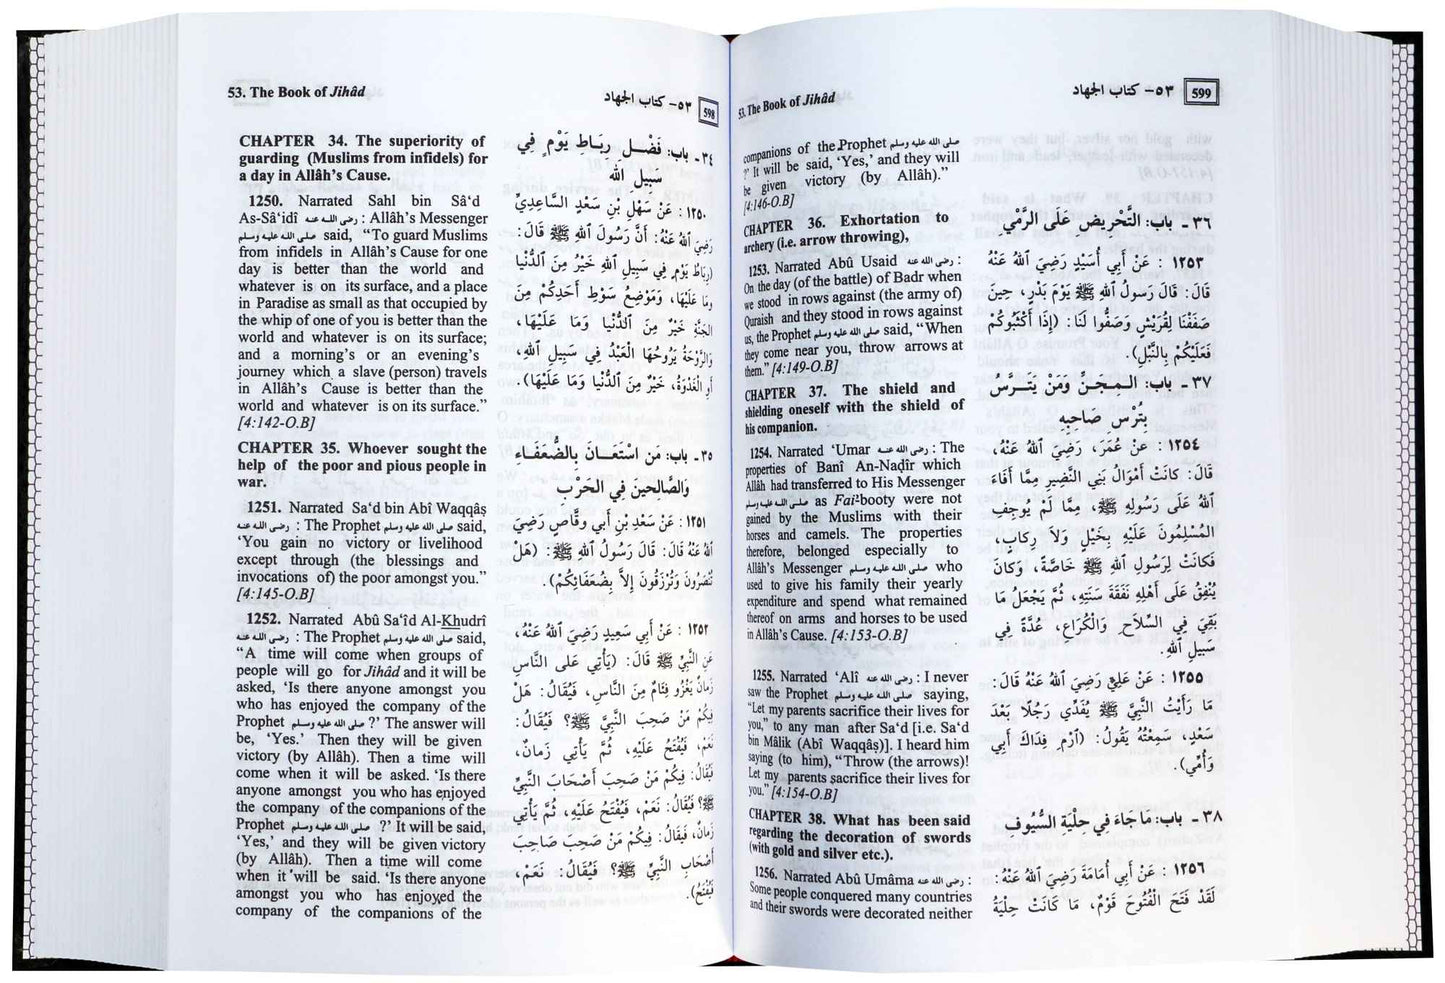 53. The Book of Jihâd
٥٣- كتاب الجهاد
598
CHAPTER 34. The superiority of
guarding (Muslims from infidels) for
a day in Allâh's Cause.
1250. Narrated Sahl bin Sâ'd
As-Sâ'idî رضى الله عنه : Allâh's Messenger
صلى الله عليه وسلم said, "To guard Muslims
from infidels in Allâh's Cause for one
day is better than the world and
whatever is on its surface, and a place
in Paradise as small as that occupied by
the whip of one of you is better than the
world and whatever is on its surface;
and a morning's or an evening's
journey which a slave (person) travels
in Allâh's Cause is better than the
world and whatever is on its surface."
[4:142-O.B]
CHAPTER 35. Whoever sought the
help of the poor and pious people in
war.
1251. Narrated Sa'd bin Abî Waqqâṣ
رضى الله عنه : The Prophet صلى الله عليه وسلم said,
'You gain no victory or livelihood
except through (the blessings and
invocations of) the poor amongst you."
[4:145-O.B]
1252. Narrated Abû Sa'îd Al-Khudrî
رضى الله عنه : The Prophet صلى الله عليه وسلم said,
"A time will come when groups of
people will go for Jihâd and it will be
asked, 'Is there anyone amongst you
who has enjoyed the company of the
Prophet صلى الله عليه وسلم ?' The answer will
be, 'Yes.' Then they will be given
victory (by Allâh). Then a time will
come when it will be asked. 'Is there
anyone amongst you who has enjoyed
the company of the companions of the
Prophet صلى الله عليه وسلم ?' It will be said,
'Yes,' and they will be given victory
(by Allâh). Then a time will come
when it will be said. 'Is there anyone
amongst you who has enjoyed the
company of the companions of the
٣٤ ـ باب: فَضْل رِبَاطِ يَوْمٍ فِي
سَبِيلِ الله
١٢٥٠ : عَنْ سَهْلِ بْنِ سَعْدٍ السَّاعِدِيِّ
رَضِيَ اللهُ عَنْهُ: أَنَّ رَسُولَ اللهِ ﷺ قَالَ:
(رِبَاطُ يَوْمٍ فِي سَبِيلِ اللهِ خَيْرٌ مِنَ الدُّنْيَا
وَمَا عَلَيْهَا، وَمَوْضِعُ سَوْطِ أَحَدِكُمْ مِنَ
الجَنَّةِ خَيْرٌ مِنَ الدُّنْيَا وَمَا عَلَيْهَا،
وَالرَّوْحَةُ يَرُوحُهَا الْعَبْدُ فِي سَبِيلِ اللهِ،
أَوِ الْغَدْوَةُ، خَيْرٌ مِنَ الدُّنْيَا وَمَا عَلَيْهَا).
٣٥ ـ باب: مَن اسْتَعَانَ بِالضُّعَفَاءِ
والصَّالِحِينَ فِي الحَرْبِ
١٢٥١ : عَنْ سَعْدِ بْنِ أَبِي وَقَّاصٍ رَضِيَ
اللهُ عَنْهُ قَالَ: قَالَ رَسُولُ اللهِ ﷺ: (هَلْ
تُنْصَرُونَ وَتُرْزَقُونَ إِلاَّ بِضُعَفَائِكُمْ).
١٢٥٢ : عَنْ أَبِي سَعِيدٍ رَضِيَ اللهُ عَنْهُ،
عَنِ النَّبِيِّ ﷺ قَالَ: (يَأْتِي عَلَى النَّاسِ
زَمَانٌ يَغْزُو فِئَامٌ مِنَ النَّاسِ، فَيُقَالُ: هَلْ
فِيكُمْ مَنْ صَحِبَ النَّبِيَّ ﷺ؟ فَيُقَالُ:
نَعَمْ، فَيُفْتَحُ عَلَيْهِ، ثُمَّ يَأْتِي زَمَانٌ،
فَيُقَالُ: فِيكُمْ مَنْ صَحِبَ أَصْحَابَ النَّبِيِّ
ﷺ؟ فَيُقَالُ: نَعَمْ، فَيُفْتَحُ عَلَيْهِ، ثُمَّ يَأْتِي
زَمَانٌ، فَيُقَالُ: فِيكُمْ مَنْ صَحِبَ صَاحِبَ
أَصْحَابِ النَّبِيِّ ﷺ؟ فَيُقَالُ: نَعَمْ،
فَيُفْتَحُ).
53. The Book of Jihâd
٥٣- كتاب الجهاد
599
companions of the Prophet صلى الله عليه وسلم
?' It will be said, 'Yes,' and they will
be given victory (by Allâh)."
[4:146-O.B]
CHAPTER 36. Exhortation to
archery (i.e. arrow throwing),
1253. Narrated Abû Usaid رضى الله عنه :
On the day (of the battle) of Badr when
we stood in rows against (the army of)
Quraish and they stood in rows against
us, the Prophet صلى الله عليه وسلم said, "When
they come near you, throw arrows at
them." [4:149-O.B]
CHAPTER 37. The shield and
shielding oneself with the shield of
his companion.
1254. Narrated 'Umar رضى الله عنه : The
properties of Banî An-Naḍîr which
Allâh had transferred to His Messenger
صلى الله عليه وسلم as Fai'-booty were not
gained by the Muslims with their
horses and camels. The properties
therefore, belonged especially to
Allâh's Messenger صلى الله عليه وسلم who
used to give his family their yearly
expenditure and spend what remained
thereof on arms and horses to be used
in Allâh's Cause. [4:153-O.B]
1255. Narrated 'Alî رضى الله عنه : I never
saw the Prophet صلى الله عليه وسلم saying,
"Let my parents sacrifice their lives for
you," to any man after Sa'd [i.e. Sa'd
bin Mâlik (Abî Waqqâṣ)]. I heard him
saying (to him), "Throw (the arrows)!
Let my parents sacrifice their lives for
you." [4:154-O.B]
CHAPTER 38. What has been said
regarding the decoration of swords
(with gold and silver etc.).
1256. Narrated Abû Umâma رضى الله عنه :
Some people conquered many countries
and their swords were decorated neither
٣٦ ـ باب: التَّحْرِيضِ عَلَى الرَّمْيِ
١٢٥٣ : عَنْ أَبِي أُسَيْدٍ رَضِيَ اللهُ عَنْهُ
قَالَ: قَالَ رَسُولُ اللهِ ﷺ يَوْمَ بَدْرٍ، حِينَ
صَفَفْنَا لِقُرَيْشٍ وَصَفُّوا لَنَا: (إِذَا أَكْثَبُوكُمْ
فَعَلَيْكُمْ بِالنَّبْلِ).
٣٧ ـ باب: الـمِجَنِّ وَمَنْ يَتَـرَّسُ
بِتُرْسِ صَاحِبِهِ
١٢٥٤ : عَنْ عُمَرَ، رَضِيَ اللهُ عَنْهُ،
قَالَ: كَانَتْ أَمْوَالُ بَنِي النَّضِيرِ مِمَّا أَفَاءَ
اللهُ عَلَى رَسُولِهِ ﷺ، مِمَّا لَمْ يُوجِفِ
المُسْلِمُونَ عَلَيْهِ بِخَيْلٍ وَلاَ رِكابٍ،
فَكَانَتْ لِرَسُولِ اللهِ ﷺ خَاصَّةً، وَكانَ
يُنْفِقُ عَلَى أَهْلِهِ نَفَقَةَ سَنَتِهِ، ثُمَّ يَجْعَلُ مَا
بَقِيَ فِي السِّلاَحِ وَالْكُرَاعِ، عُدَّةً فِي
سَبِيلِ اللهِ.
١٢٥٥ : عَنْ عَلِيٍّ رَضِيَ اللهُ عَنْهُ قَالَ:
مَا رَأَيْتُ النَّبِيَّ ﷺ يُفَدِّي رَجُلًا بَعْدَ
سَعْدٍ، سَمِعْتُهُ يَقُولُ: (ارْمِ فِدَاكَ أَبِي
وَأُمِّي).
٣٨ ـ باب: مَا جَاءَ فِي حِلْيَةِ السُّيُوفِ
١٢٥٦ : عَنْ أَبِي أُمَامَةَ رَضِيَ اللهُ عَنْهُ:
لَقَدْ فَتَحَ الْفُتُوحَ قَوْمٌ، مَا كَانَتْ حِلْيَةُ